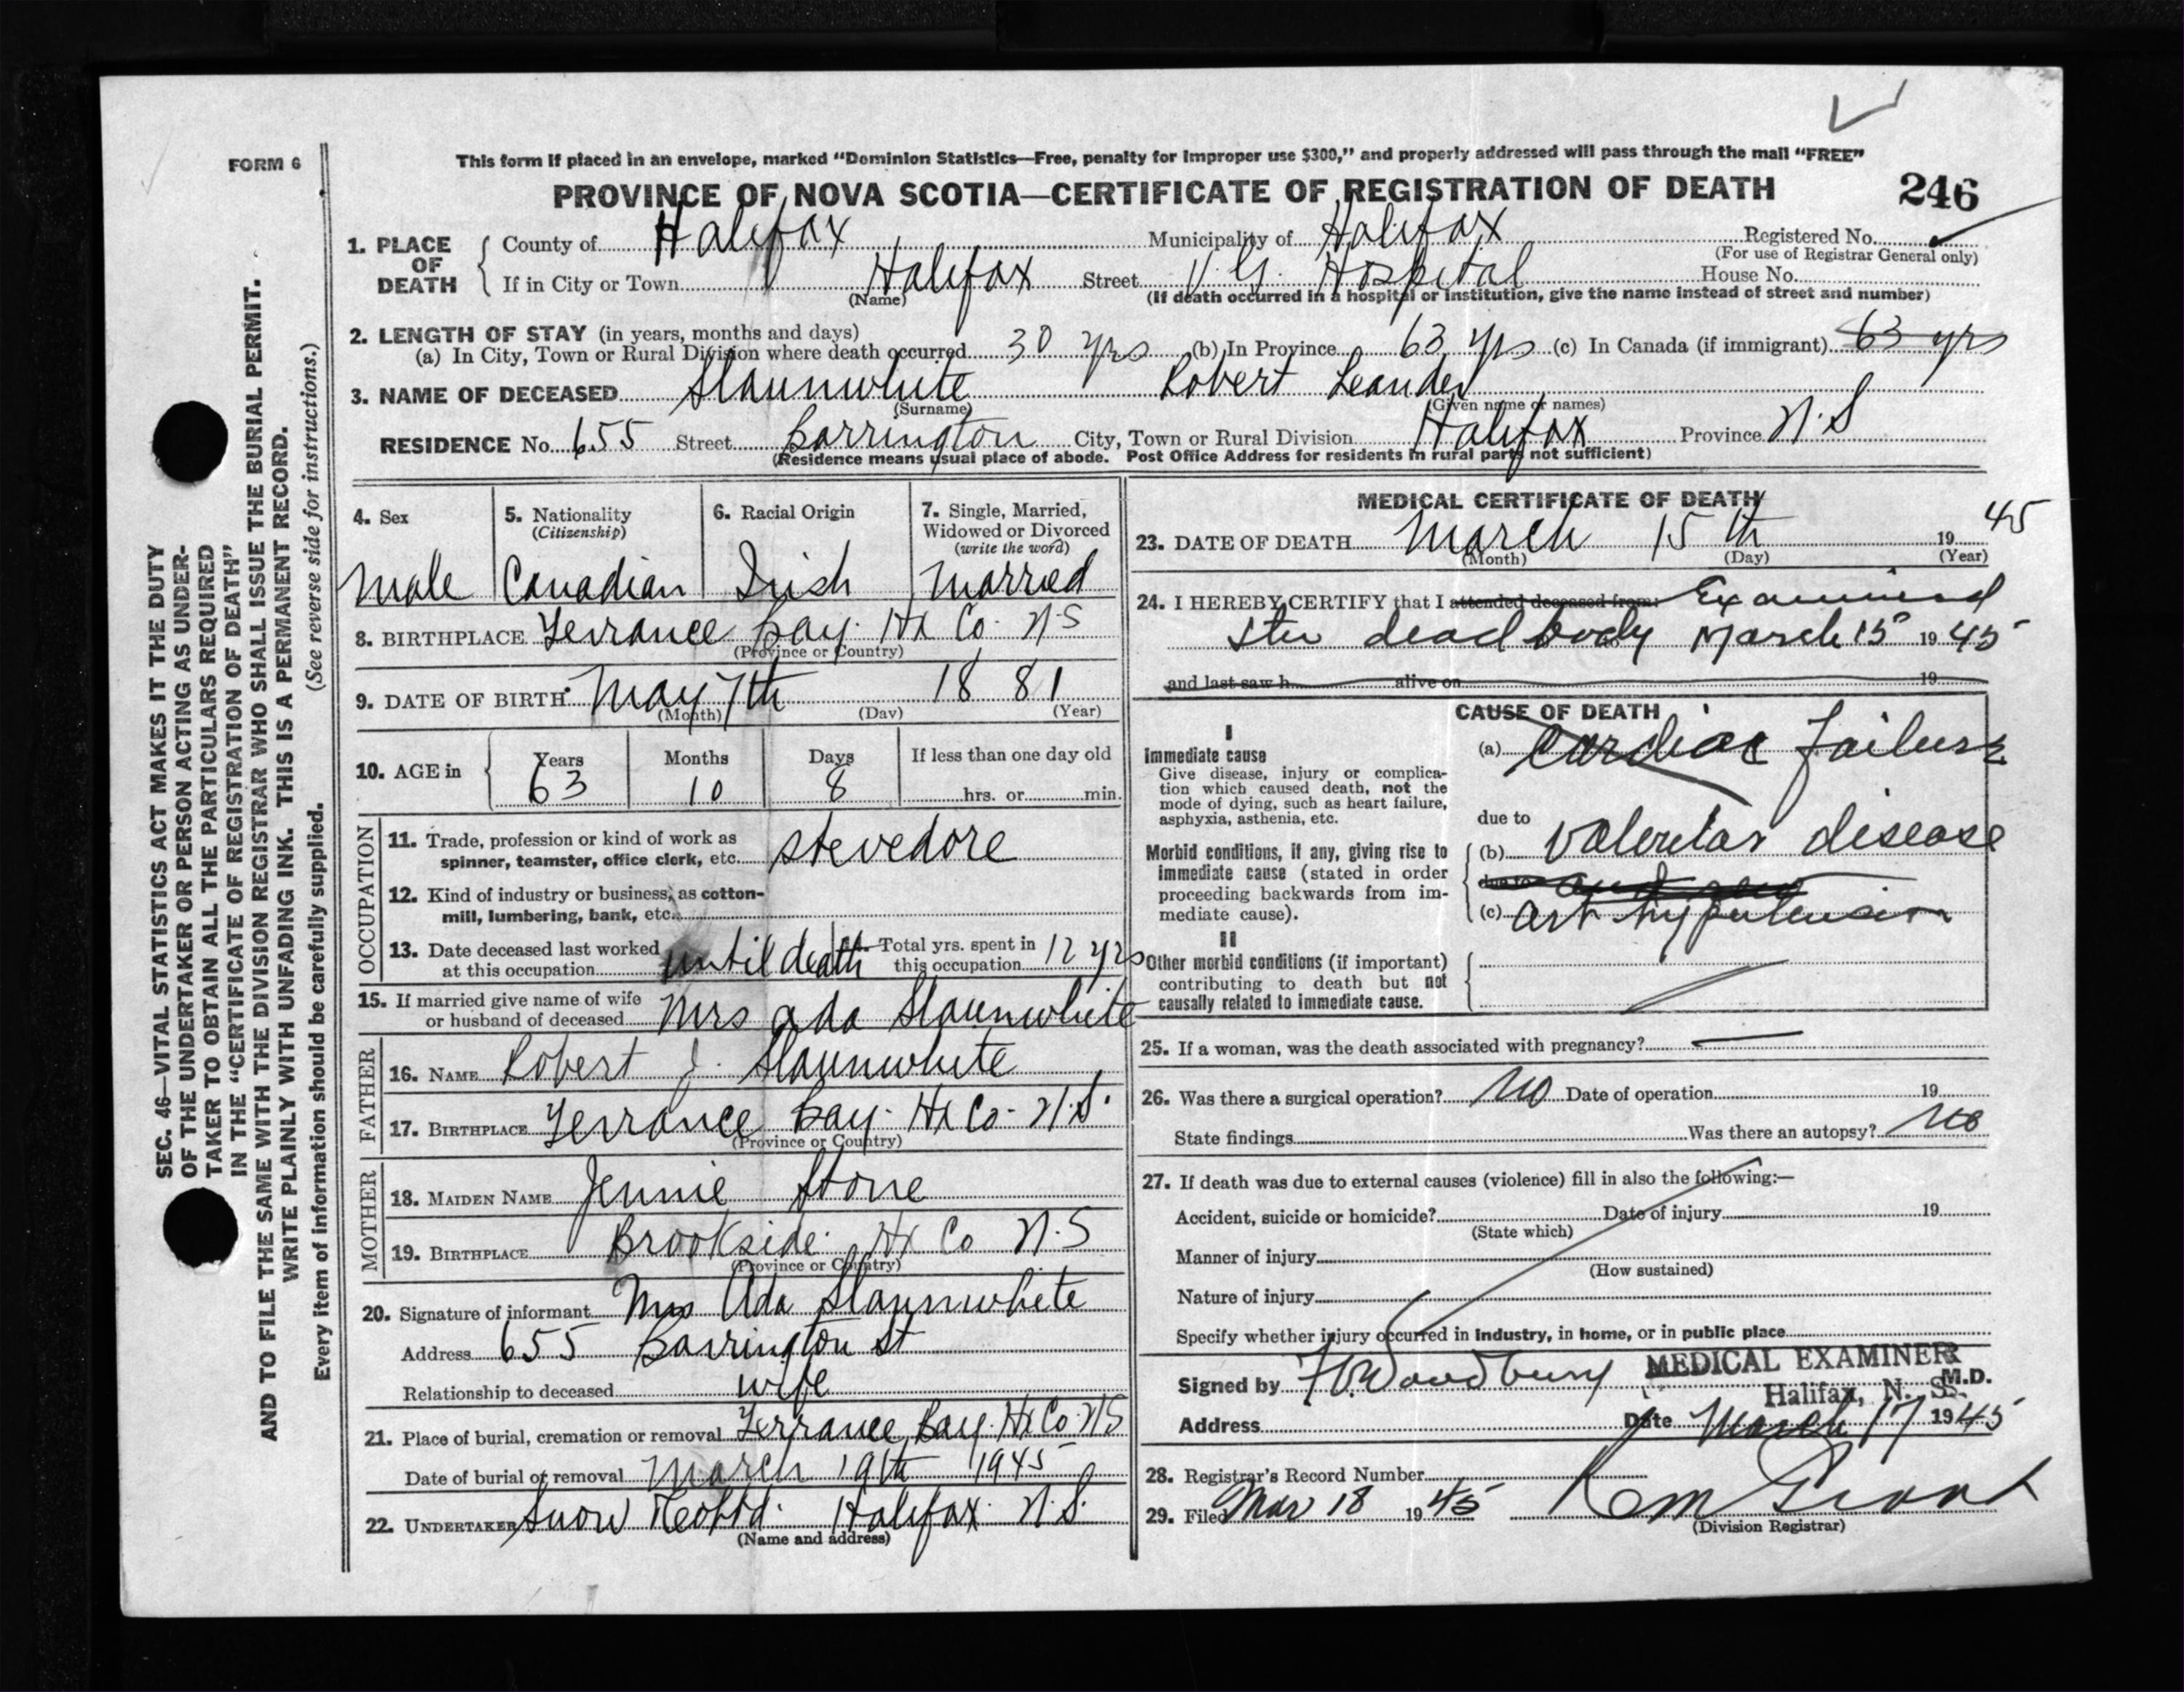 FORM 6
This form if placed in an envelope, marked "Dominion Statistics—Free, penalty for improper use $300," and properly addressed will pass through the mail "FREE"
PROVINCE OF NOVA SCOTIA—CERTIFICATE OF REGISTRATION OF DEATH
246
1. PLACE OF DEATH
County of Halifax Municipality of Halifax Registered No.
(For use of Registrar General only)
If in City or Town Halifax Street V. G. Hospital House No.
(Name) (If death occurred in a hospital or institution, give the name instead of street and number)
2. LENGTH OF STAY (in years, months and days)
(a) In City, Town or Rural Division where death occurred 30 yrs (b) In Province 63 yrs (c) In Canada (if immigrant) 63 yrs
3. NAME OF DECEASED Slaunwhite Robert Leander
(Surname) (Given name or names)
RESIDENCE No. 655 Street Barrington City, Town or Rural Division Halifax Province N.S
(Residence means usual place of abode. Post Office Address for residents in rural parts not sufficient)
4. Sex
Male
5. Nationality
(Citizenship)
Canadian
6. Racial Origin
Irish
7. Single, Married,
Widowed or Divorced
(write the word)
Married
8. BIRTHPLACE Terrance Bay. Hx Co. N S
(Province or Country)
9. DATE OF BIRTH May 7th 1881
(Month) (Day) (Year)
10. AGE in
Years Months Days If less than one day old
63 10 8 hrs. or min.
OCCUPATION
11. Trade, profession or kind of work as
spinner, teamster, office clerk, etc. stevedore
12. Kind of industry or business, as cotton-
mill, lumbering, bank, etc.
13. Date deceased last worked
at this occupation until death
14. Total yrs. spent in
this occupation 12 yrs
15. If married give name of wife
or husband of deceased Mrs Ada Slaunwhite
FATHER
16. NAME Robert J. Slaunwhite
17. BIRTHPLACE Terrance Bay. Hx Co. N.S.
(Province or Country)
MOTHER
18. MAIDEN NAME Jennie Stone
19. BIRTHPLACE Brookside. Hx Co N.S
(Province or Country)
20. Signature of informant Mrs Ada Slaunwhite
Address 655 Barrington St
Relationship to deceased wife
21. Place of burial, cremation or removal Terrance Bay. Hx Co. NS
Date of burial or removal March 19th 1945
22. UNDERTAKER Snow &Co Ltd. Halifax. N.S.
(Name and address)
MEDICAL CERTIFICATE OF DEATH
23. DATE OF DEATH March 15th 1945
(Month) (Day) (Year)
24. I HEREBY CERTIFY that I attended deceased from: Examined
dead body March 15 1945
and last saw h alive on 19
CAUSE OF DEATH
I
Immediate cause
Give disease, injury or complica-
tion which caused death, not the
mode of dying, such as heart failure,
asphyxia, asthenia, etc.
(a) Cardiac Failure
due to
Morbid conditions, if any, giving rise to
immediate cause (stated in order
proceeding backwards from im-
mediate cause).
(b) Valvular disease
due to
(c) Art hypertension
II
Other morbid conditions (if important)
contributing to death but not
causally related to immediate cause.
25. If a woman, was the death associated with pregnancy? —
26. Was there a surgical operation? No Date of operation 19
State findings Was there an autopsy? No
27. If death was due to external causes (violence) fill in also the following:—
Accident, suicide or homicide? Date of injury 19
(State which)
Manner of injury
(How sustained)
Nature of injury
Specify whether injury occurred in industry, in home, or in public place
Signed by Woodbury MEDICAL EXAMINER M.D.
Halifax, N. S.
Address Date March 17 1945
28. Registrar's Record Number
29. Filed Mar 18 1945
(Division Registrar)
SEC. 46—VITAL STATISTICS ACT MAKES IT THE DUTY
OF THE UNDERTAKER OR PERSON ACTING AS UNDER-
TAKER TO OBTAIN ALL THE PARTICULARS REQUIRED
IN THE "CERTIFICATE OF REGISTRATION OF DEATH"
AND TO FILE THE SAME WITH THE DIVISION REGISTRAR WHO SHALL ISSUE THE BURIAL PERMIT.
WRITE PLAINLY WITH UNFADING INK. THIS IS A PERMANENT RECORD.
Every item of information should be carefully supplied. (See reverse side for instructions.)